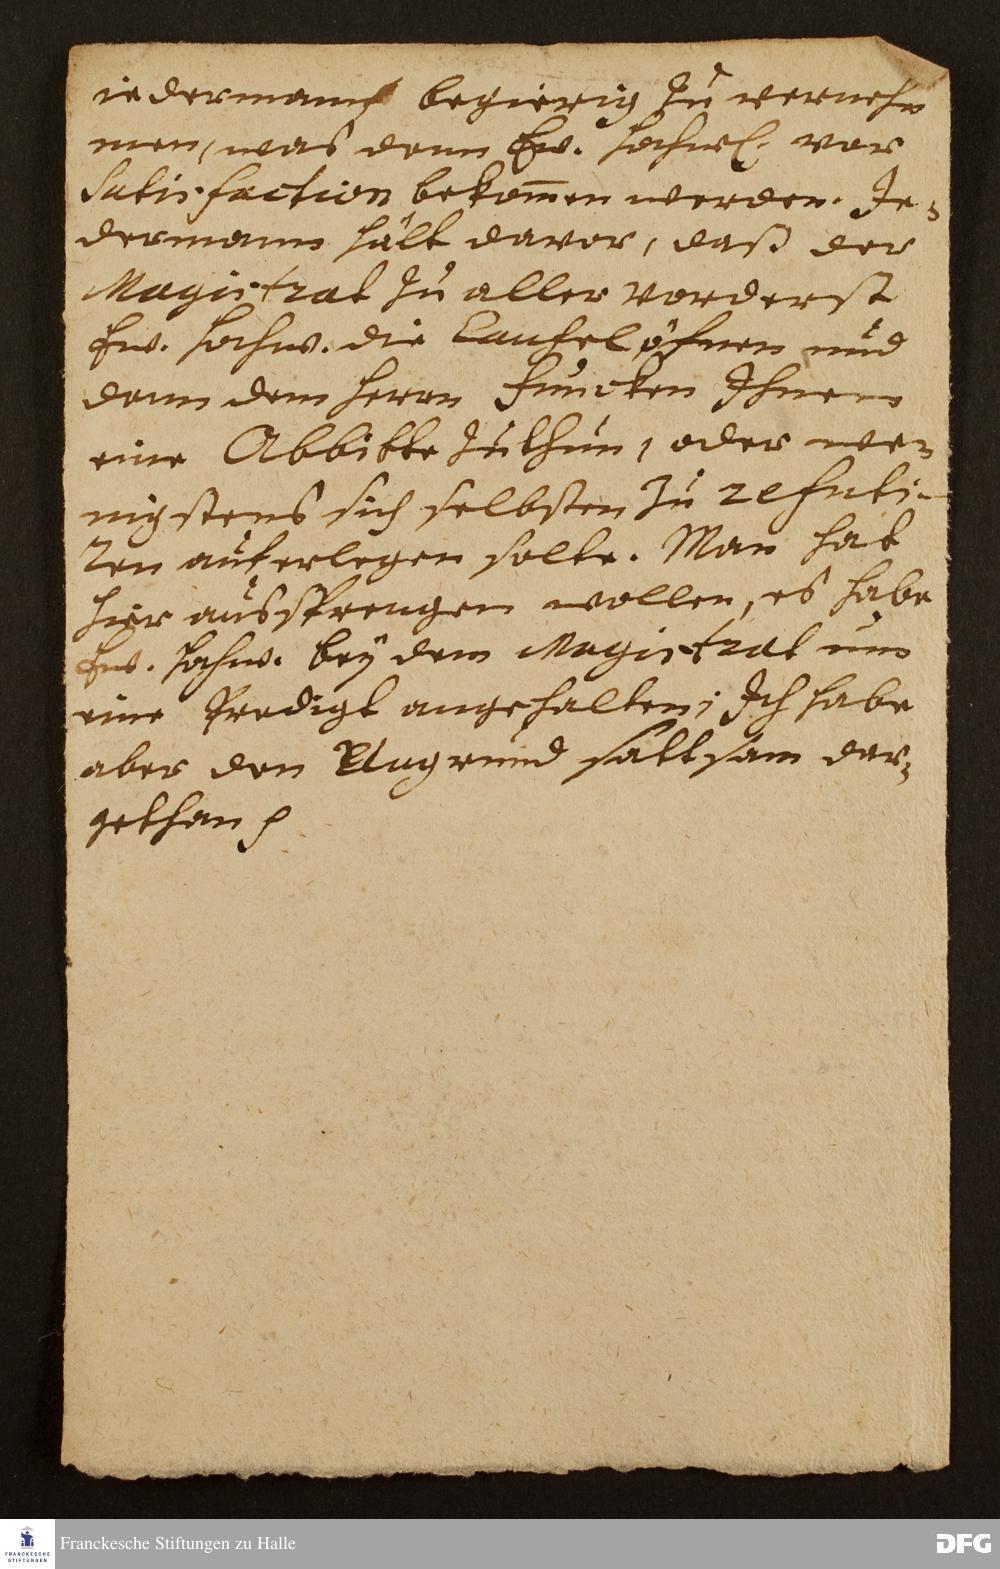 iedermann begierig zu verneh
men, was denn Ew. Hochwl. vor
Satisfaction bekom̄en werden. Je-
dermann hält davor, daß der
Magistrat zu aller vorderst
Ew. Hochw. die Cantzel öfnen und
denn dem Herrn Funcken Ihnen
eine Abbitte zuthun, oder we-
nigstens sich selbsten zu refuti-
ren auferlegen solte. Man hat
hier aussprengen wollen, es habe
Ew. Hochw. bey dem Magistrat um
eine Predigt angehalten; Ich habe
aber den Ungrund sattsam dar-
gethan
FRANCKESCHE STIFTUNGEN
Franckesche Stiftungen zu Halle
DFG